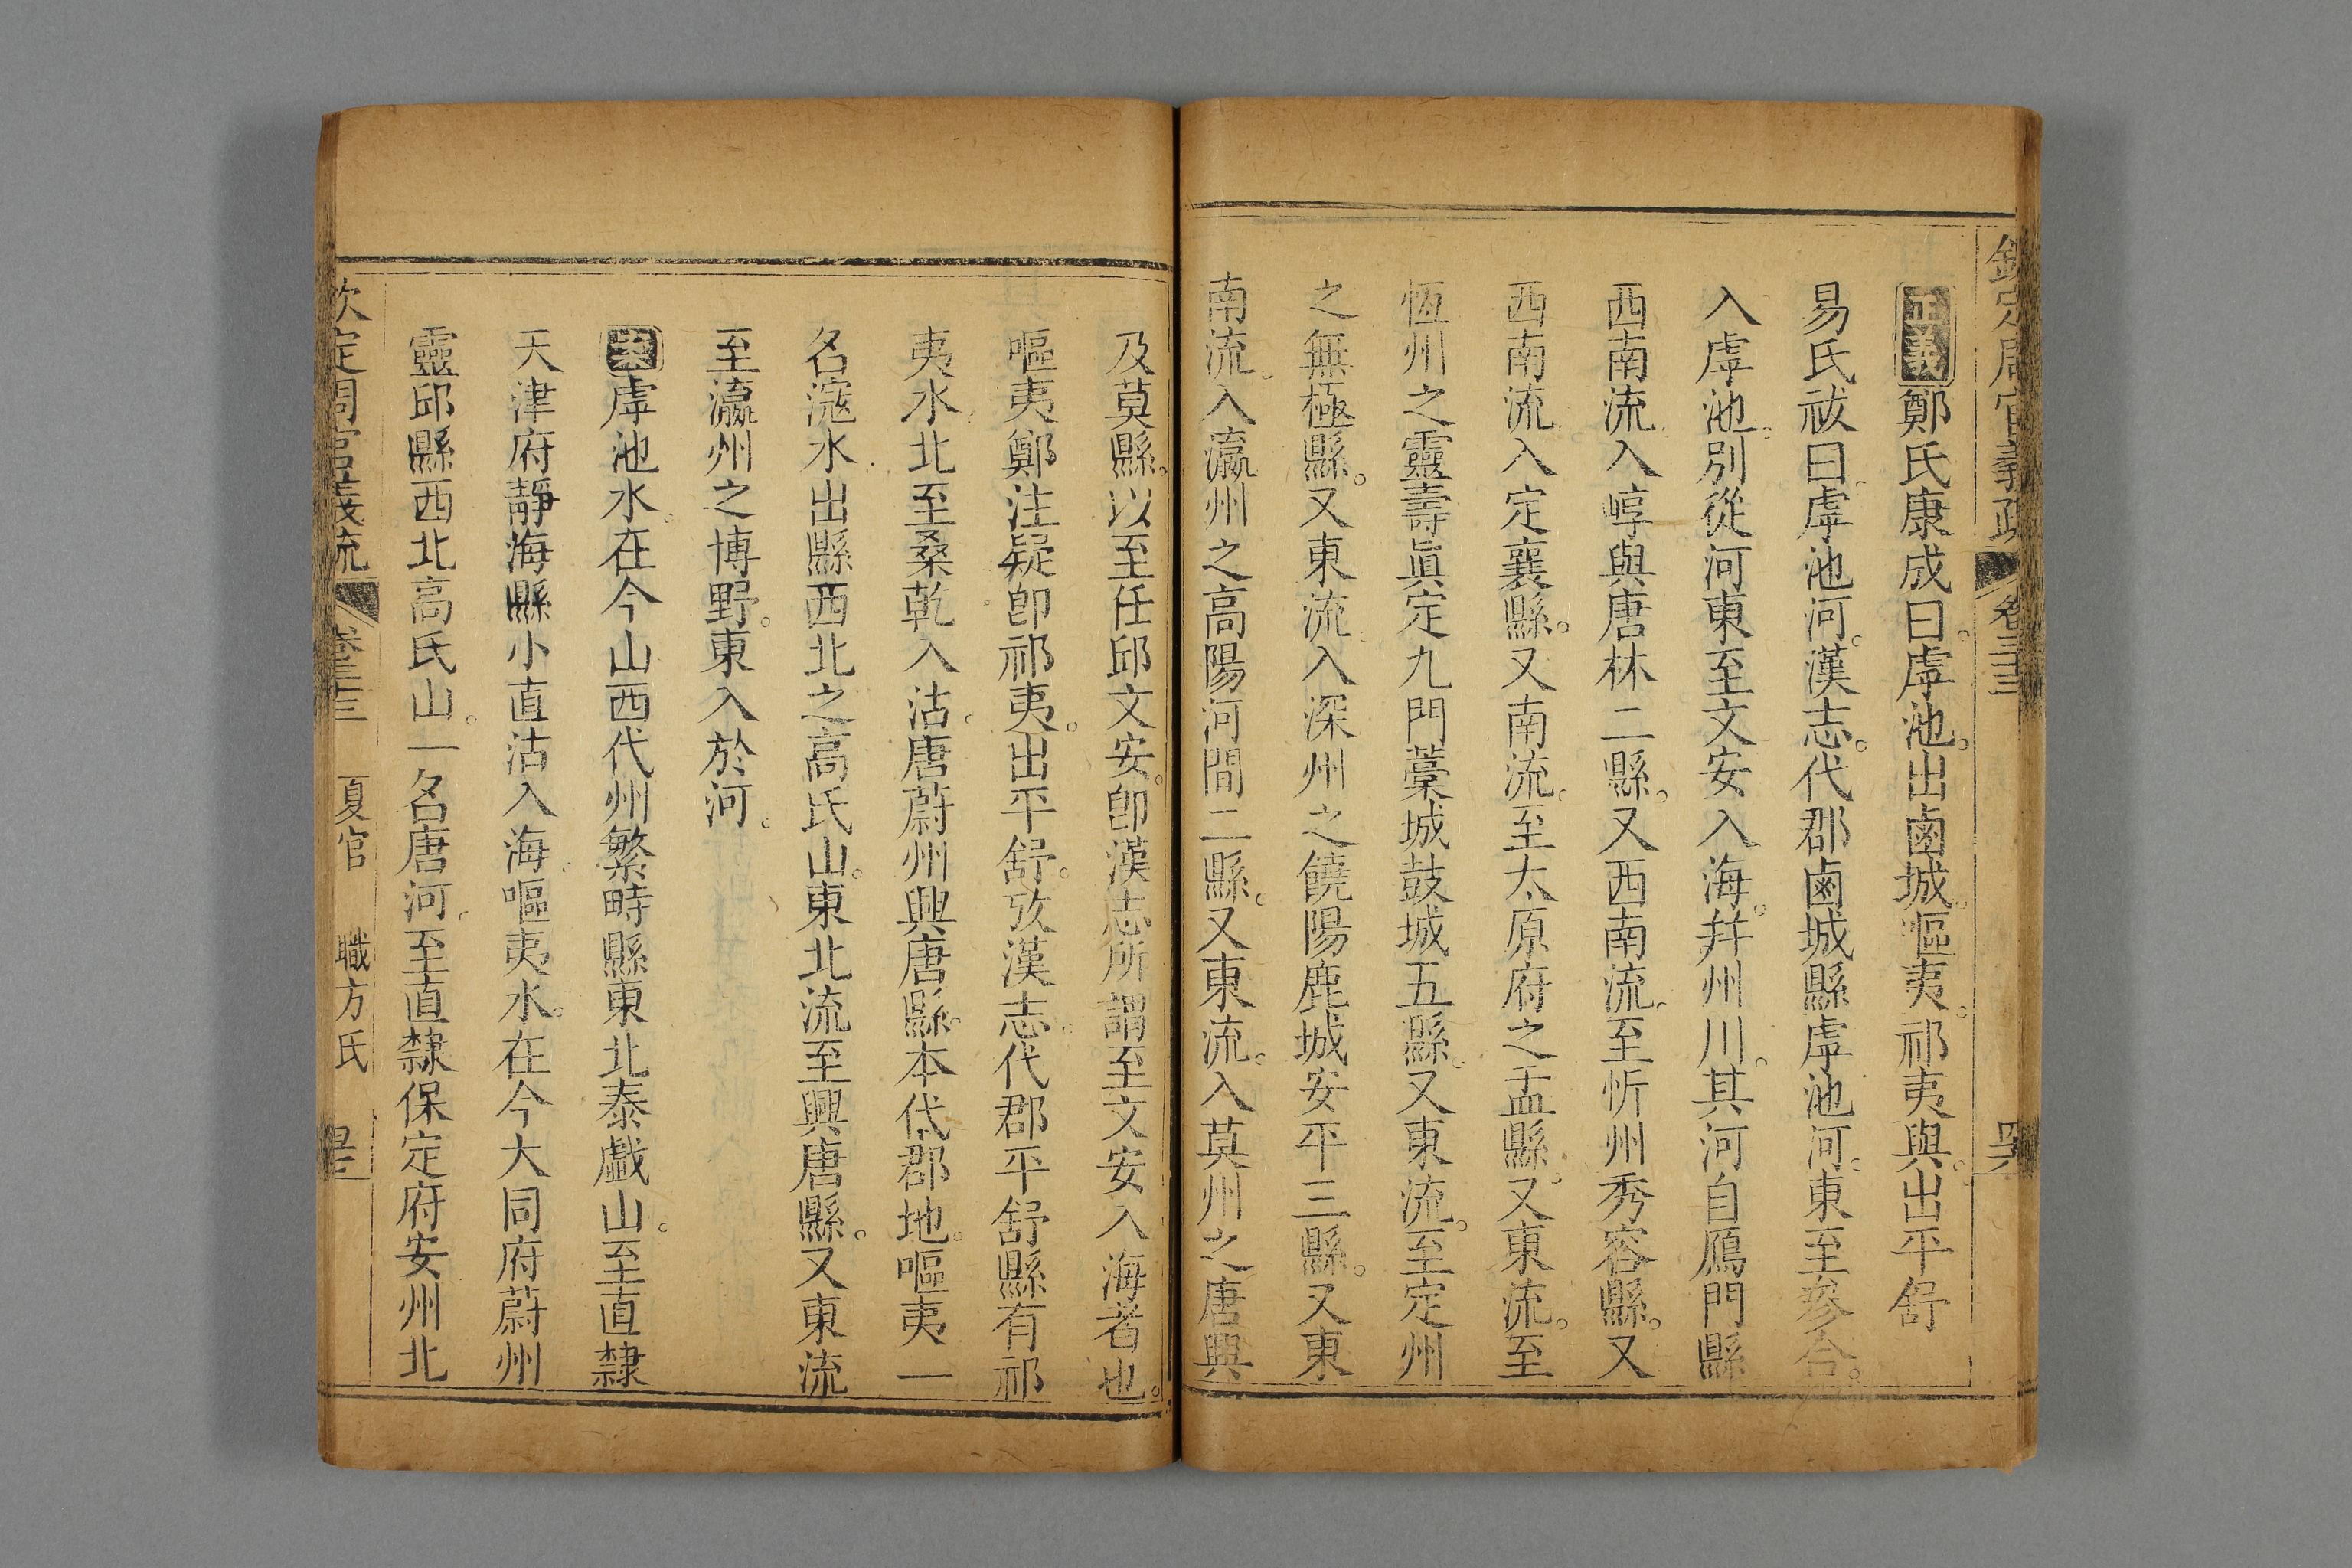 欽定周官義疏 卷三十三 四六
正義鄭氏康成曰虖池出鹵城嘔夷祁夷與出平舒
易氏祓曰虖池河漢志代郡鹵城縣虖池河東至參合
入虖池別從河東至文安入海并州川其河自鴈門縣
西南流入崞與唐林二縣又西南流至忻州秀容縣又
西南流入定襄縣又南流至太原府之盂縣又東流至
恆州之靈壽眞定九門藁城鼓城五縣又東流至定州
之無極縣又東流入深州之饒陽鹿城安平三縣又東
南流入瀛州之高陽河間二縣又東流入莫州之唐興
及莫縣以至任邱文安卽漢志所謂至文安入海者也
嘔夷鄭注疑卽祁夷出平舒攷漢志代郡平舒縣有祁
夷水北至桑乾入沽唐蔚州興唐縣本代郡地嘔夷一
名滱水出縣西北之高氏山東北流至興唐縣又東流
至瀛州之博野東入於河
案虖池水在今山西代州繁畤縣東北泰戲山至直隸
天津府靜海縣小直沽入海嘔夷水在今大同府蔚州
靈邱縣西北高氏山一名唐河至直隸保定府安州北
欽定周官義疏 卷三十三 夏官 職方氏